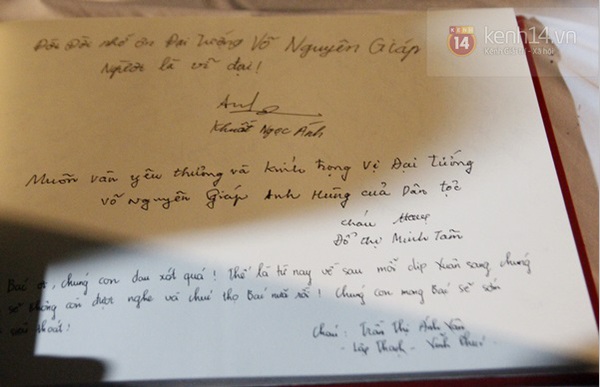 KENH
14
kenh14.vn
Kênh Giải trí - Xã hội
Đời Đời nhớ ơn Đại Tướng Võ Nguyên Giáp
Người là vĩ đại!
Anh
Khuất Ngọc Ánh
Muôn vàn yêu thương và kính trọng vị Đại Tướng
võ Nguyên Giáp Anh Hùng của Dân tộc
cháu
Đỗ Thị Minh Tâm
Bác ơi, chúng con đau xót quá! Thế là từ nay về sau mỗi dịp Xuân sang, chúng
sẽ không còn được nghe và chúc thọ Bác nữa rồi! Chúng con mong Bác sẽ sớm
siêu thoát!
Cháu: Trần Thị Ánh Vân
- Lập Thạch - Vĩnh Phúc -